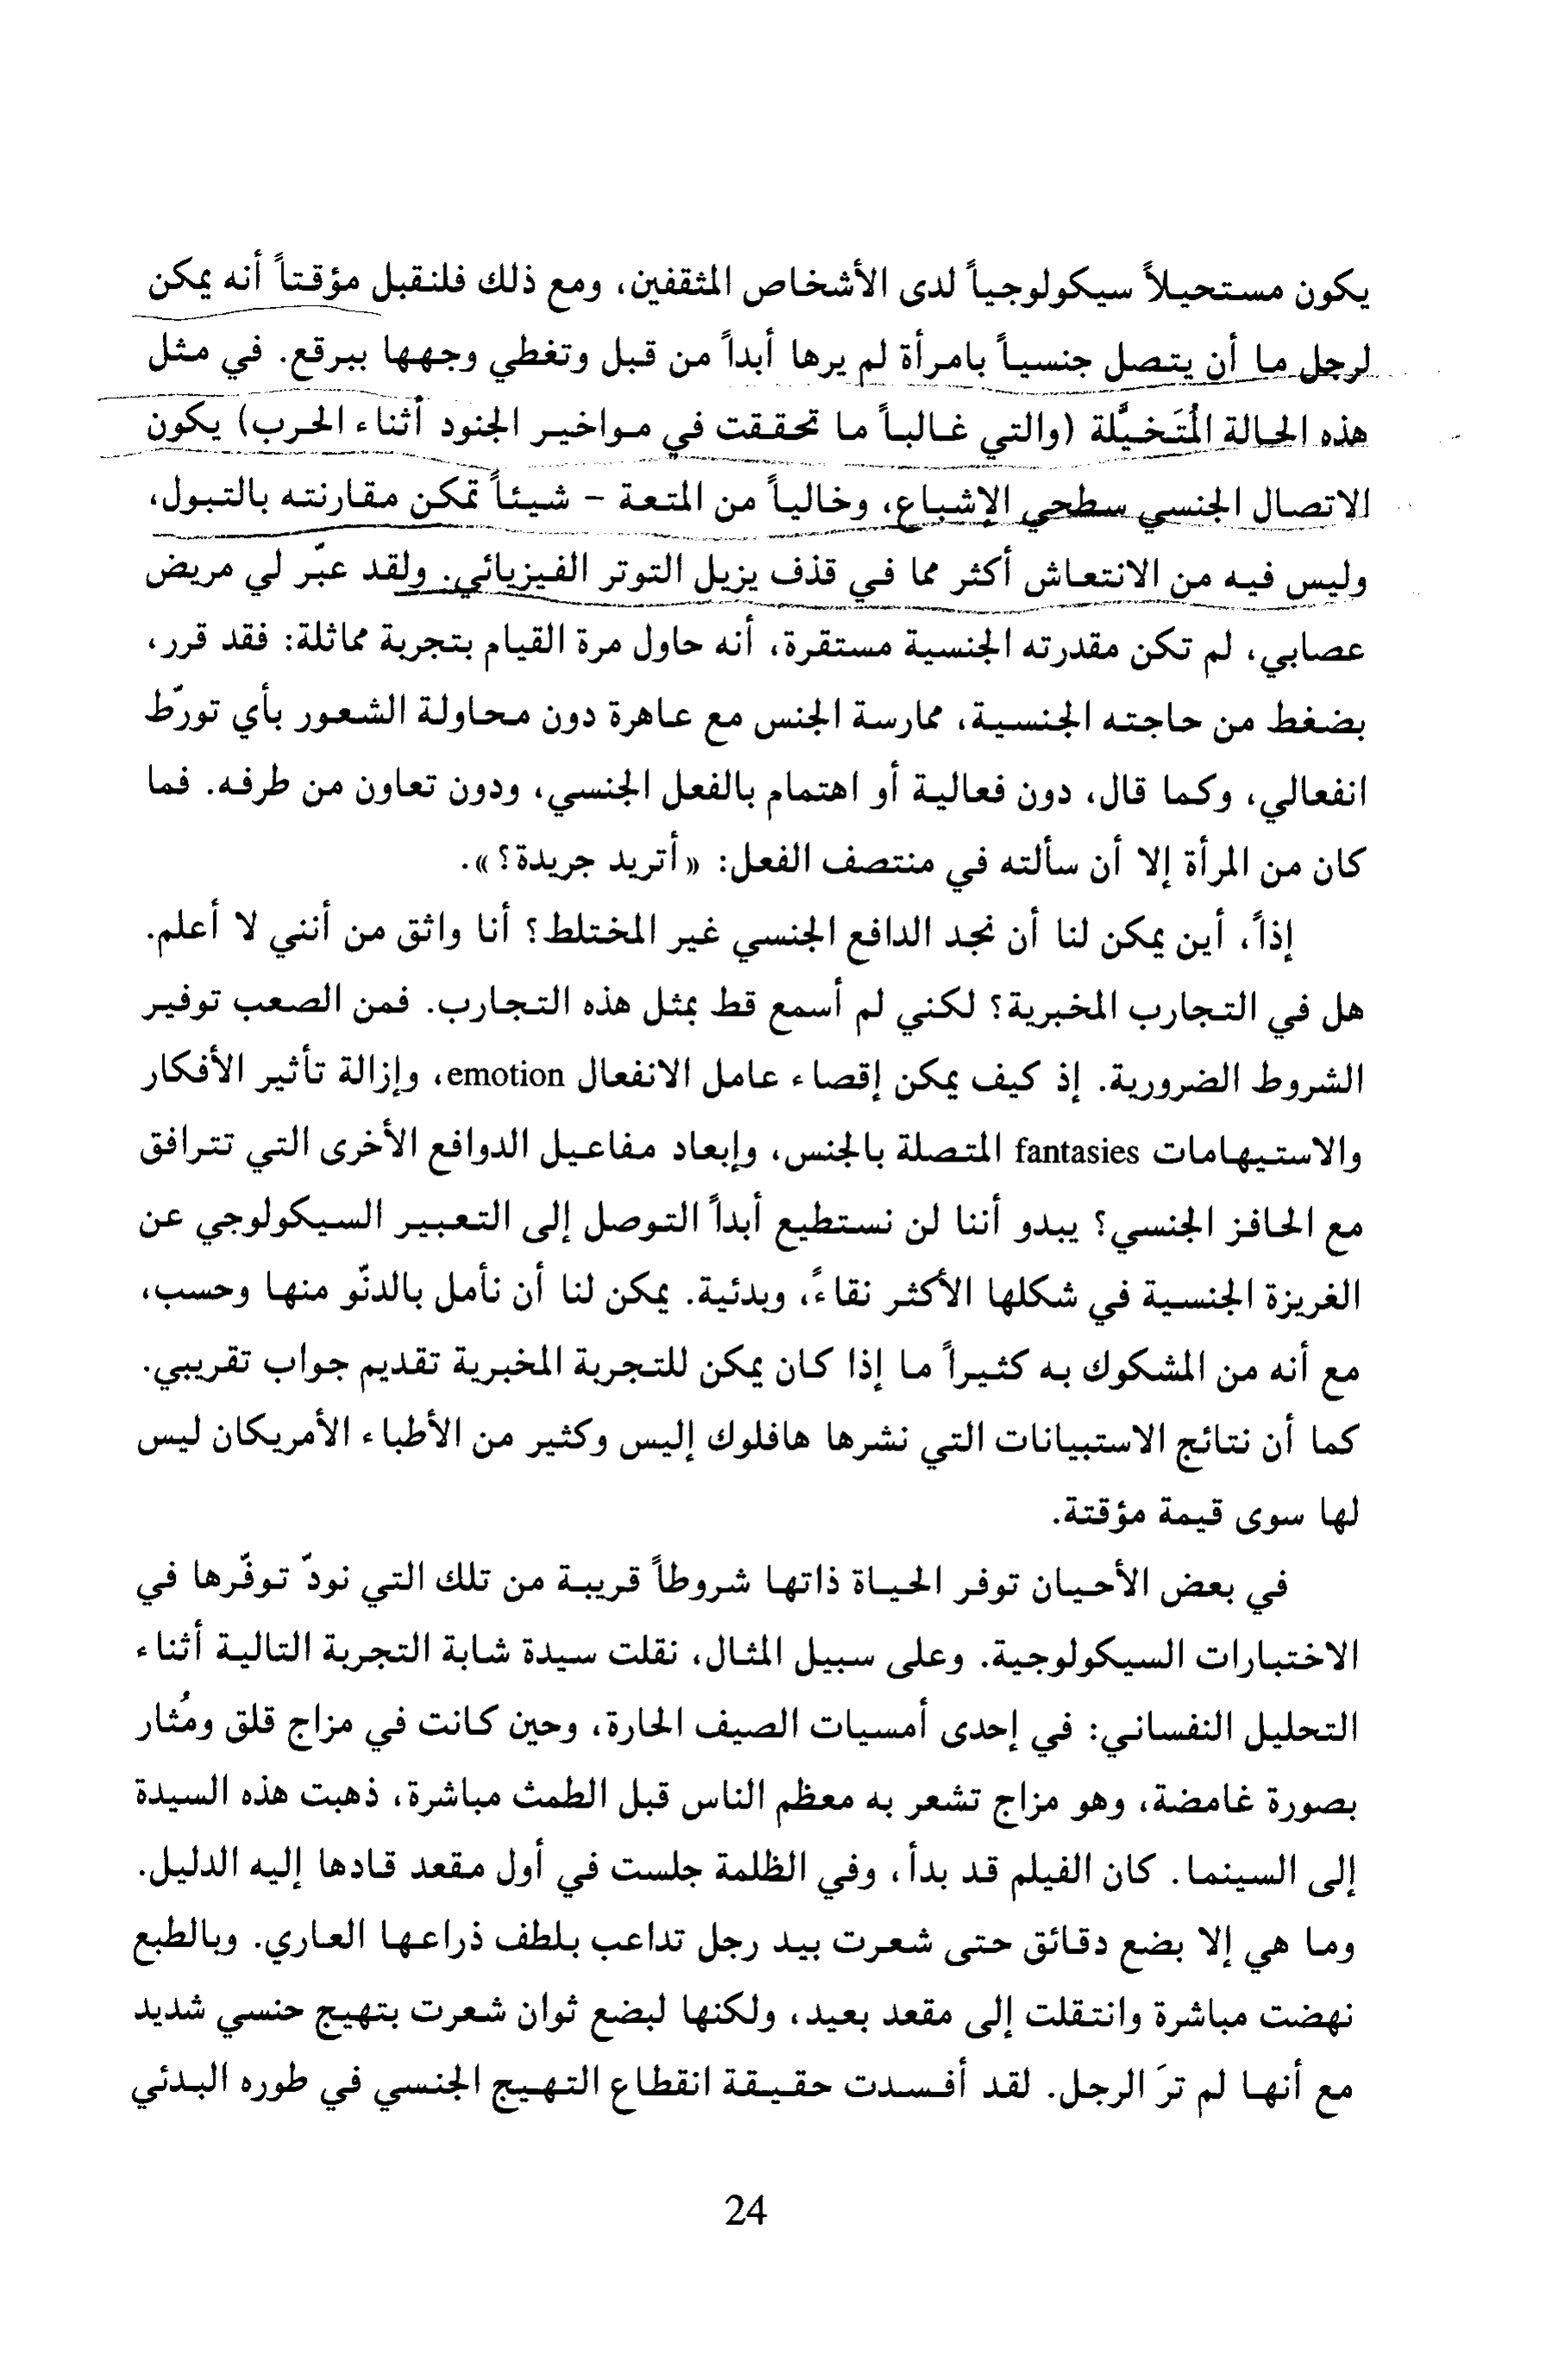 يكون مستحيلاً سيكولوجياً لدى الأشخاص المثقفين، ومع ذلك فلنقبل مؤقتاً أنه يمكن
لرجل ما أن يتصل جنسياً بامرأة لم يرها أبداً من قبل وتغطي وجهها ببرقع. في مثل
هذه الحالة المُتَخيَّلة (والتي غالباً ما تحققت في مواخير الجنود أثناء الحرب) يكون
الاتصال الجنسي سطحي الإشباع، وخالياً من المتعة - شيئاً تمكن مقارنته بالتبول،
وليس فيه من الانتعاش أكثر مما في قذف يزيل التوتر الفيزيائي. ولقد عبّر لي مريض
عصابي، لم تكن مقدرته الجنسية مستقرة، أنه حاول مرة القيام بتجربة مماثلة: فقد قرر،
بضغط من حاجته الجنسية، ممارسة الجنس مع عاهرة دون محاولة الشعور بأي تورّط
انفعالي، وكما قال، دون فعالية أو اهتمام بالفعل الجنسي، ودون تعاون من طرفه. فما
كان من المرأة إلا أن سألته في منتصف الفعل: «أتريد جريدة؟».
إذاً، أين يمكن لنا أن نجد الدافع الجنسي غير المختلط؟ أنا واثق من أنني لا أعلم.
هل في التجارب المخبرية؟ لكني لم أسمع قط بمثل هذه التجارب. فمن الصعب توفير
الشروط الضرورية. إذ كيف يمكن إقصاء عامل الانفعال emotion، وإزالة تأثير الأفكار
والاستيهامات fantasies المتصلة بالجنس، وإبعاد مفاعيل الدوافع الأخرى التي تترافق
مع الحافز الجنسي؟ يبدو أننا لن نستطيع أبداً التوصل إلى التعبير السيكولوجي عن
الغريزة الجنسية في شكلها الأكثر نقاءً، وبدئية. يمكن لنا أن نأمل بالدنّو منها وحسب،
مع أنه من المشكوك به كثيراً ما إذا كان يمكن للتجربة المخبرية تقديم جواب تقريبي.
كما أن نتائج الاستبيانات التي نشرها هافلوك إليس وكثير من الأطباء الأمريكان ليس
لها سوى قيمة مؤقتة.
في بعض الأحيان توفر الحياة ذاتها شروطاً قريبة من تلك التي نودّ توفّرها في
الاختبارات السيكولوجية. وعلى سبيل المثال، نقلت سيدة شابة التجربة التالية أثناء
التحليل النفساني: في إحدى أمسيات الصيف الحارة، وحين كانت في مزاج قلق ومُثار
بصورة غامضة، وهو مزاج تشعر به معظم الناس قبل الطمث مباشرة، ذهبت هذه السيدة
إلى السينما. كان الفيلم قد بدأ، وفي الظلمة جلست في أول مقعد قادها إليه الدليل.
وما هي إلا بضع دقائق حتى شعرت بيد رجل تداعب بلطف ذراعها العاري. وبالطبع
نهضت مباشرة وانتقلت إلى مقعد بعيد، ولكنها لبضع ثوان شعرت بتهيج حنسي شديد
مع أنها لم ترَ الرجل. لقد أفسدت حقيقة انقطاع التهيج الجنسي في طوره البدئي
24